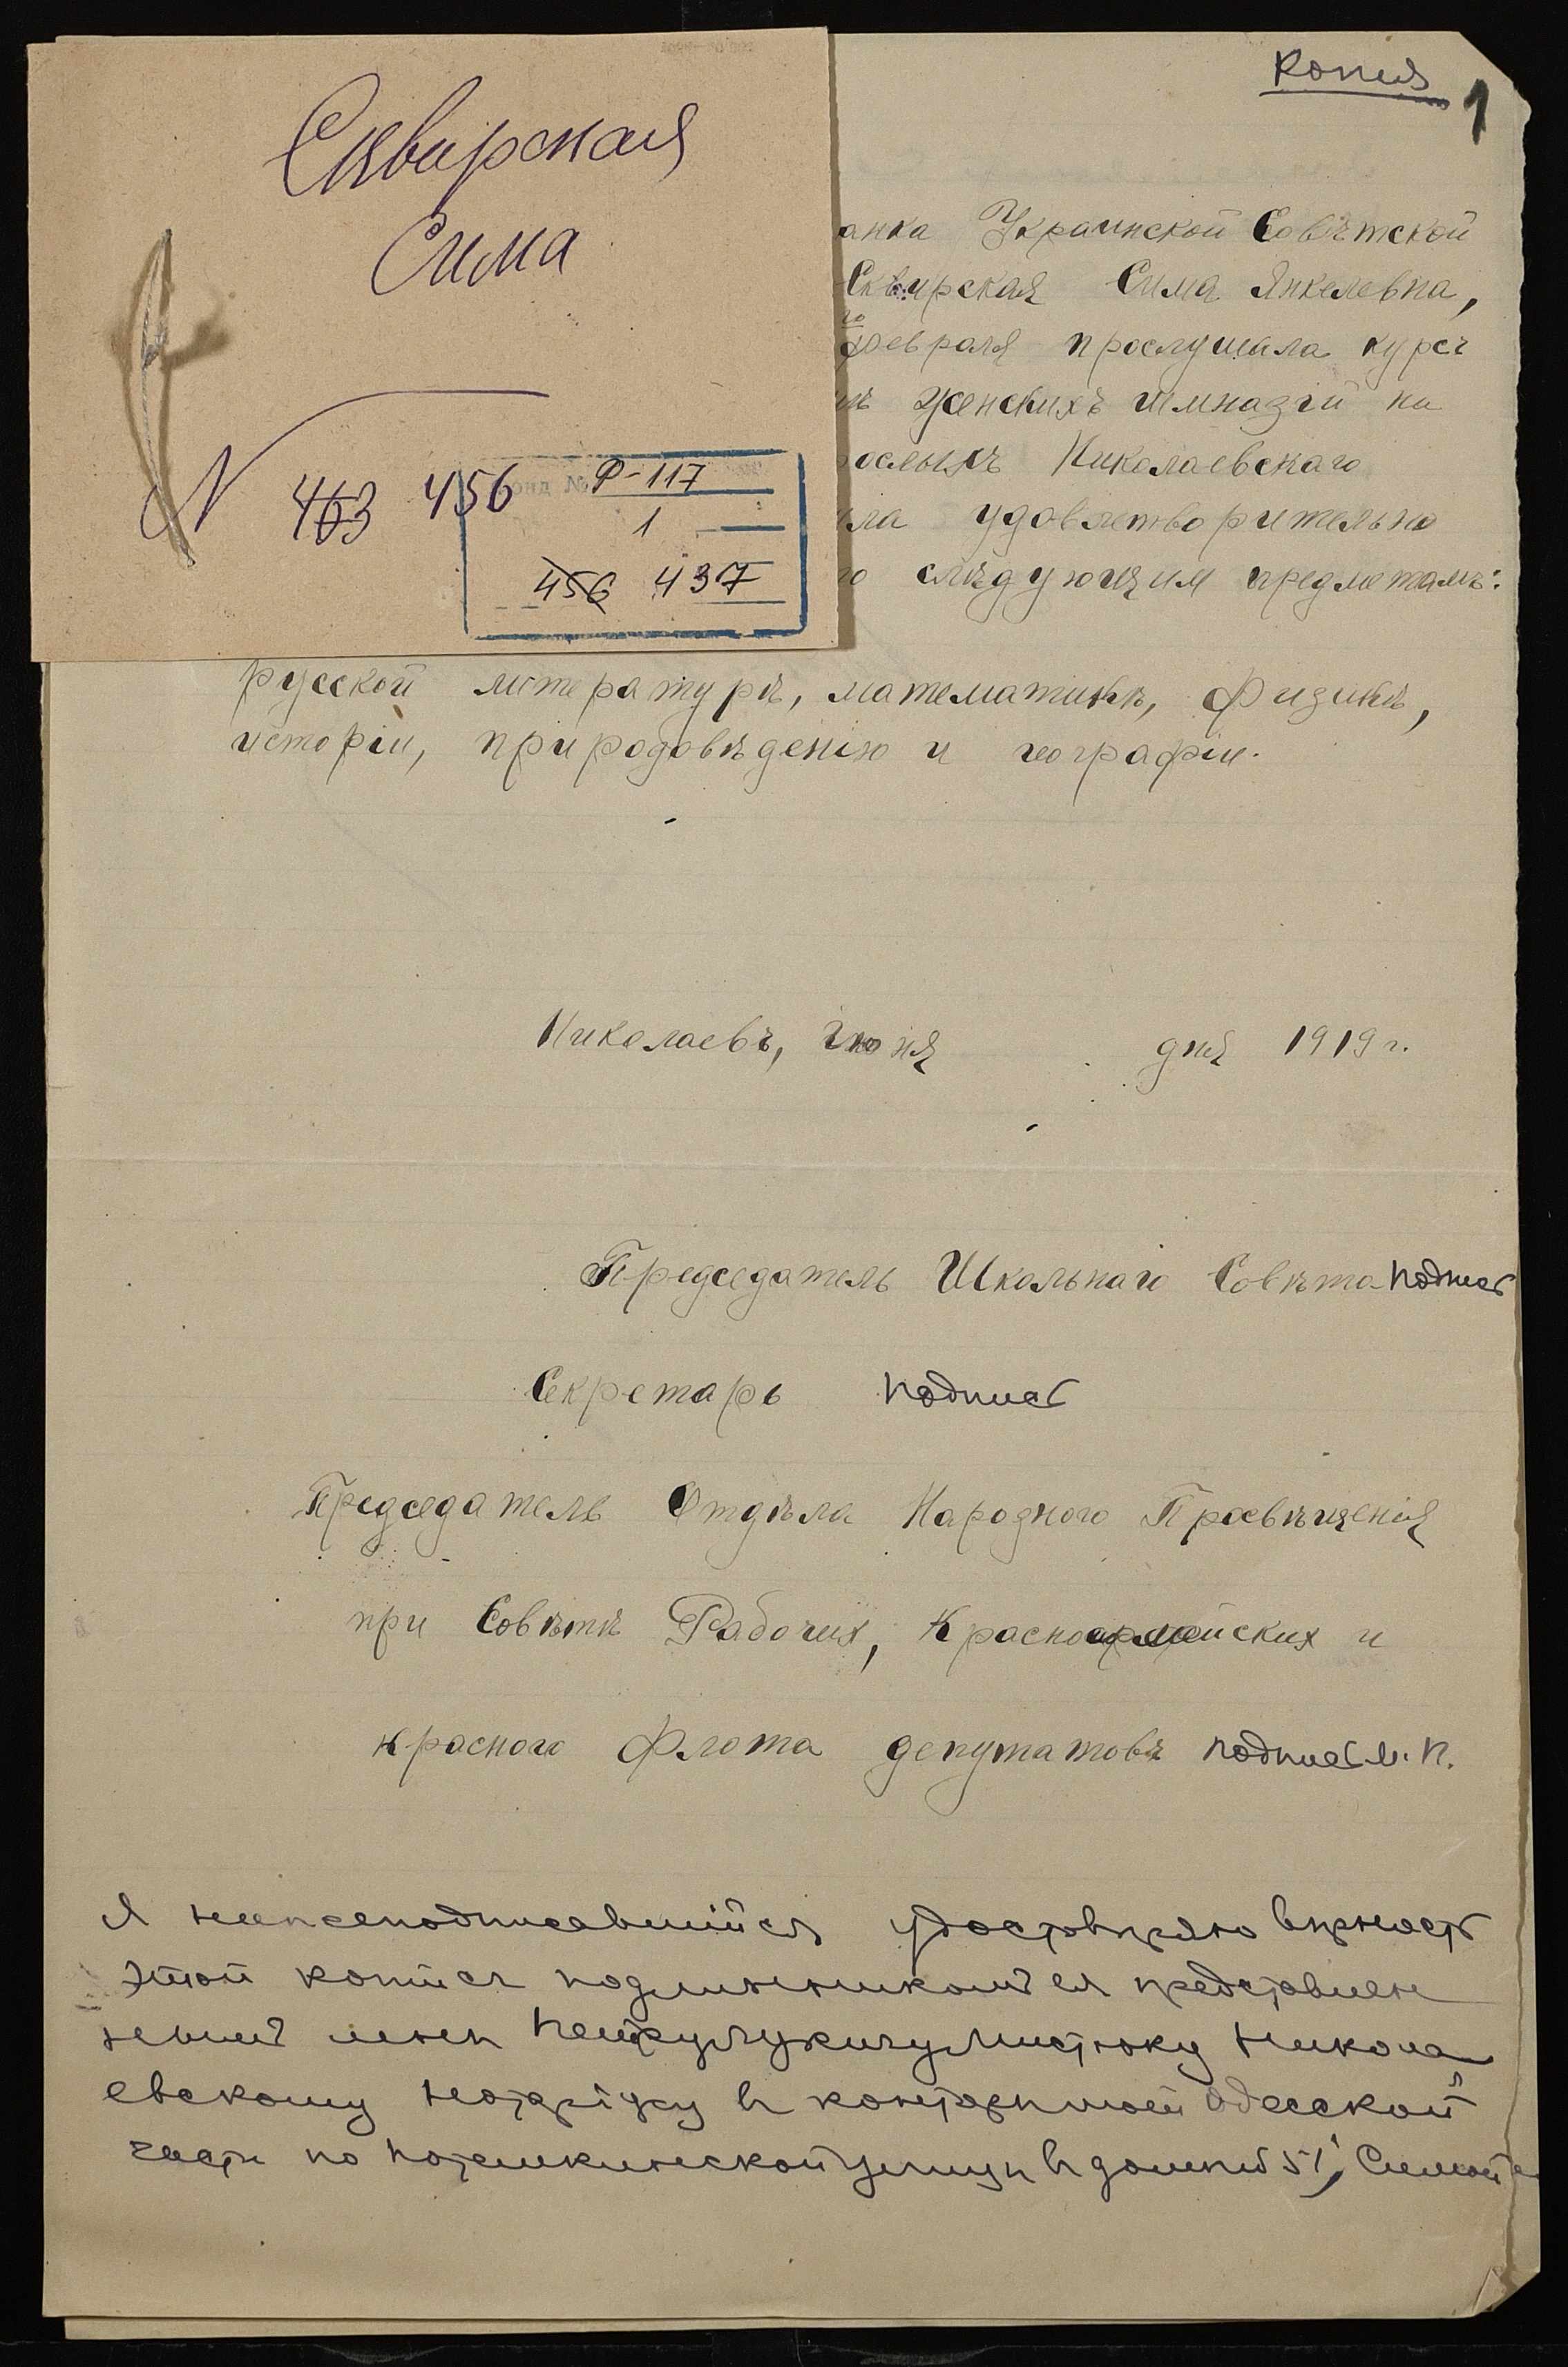 Сквирская
Сима
N 463 456
Фонд № Ф-117
1
456 437
Копия 1
анка Украинской Совѣтской
Сквирская Сима Янкелевна,
го февраля прослушала курсъ
женскихъ гимназій на
рослыхъ Николаевскаго
ла удовлетворительно
слѣдующим предметамъ:
русской литературѣ, математикѣ, физикѣ,
исторіи, природовѣдению и географіи.
Николаевъ, Іюня дня 1919 г.
Председатель Школьнаго Совѣта подпись
Секретарь подпись
Председатель Отдѣла Народного Просвѣщенія
при Совѣтѣ Рабочих, Красноармейских и
красного Флота депутатовъ подпись М. П.
Я нижеподписавшійся удостовѣряю вѣрность
этой копіи съ подлинникомъ ея представлен
нымъ мнѣ Мистюку Никола
евскому Нотаріусу в конторѣ моей Одесской
части по Потемкинской улицѣ в домѣ № 51, Симой